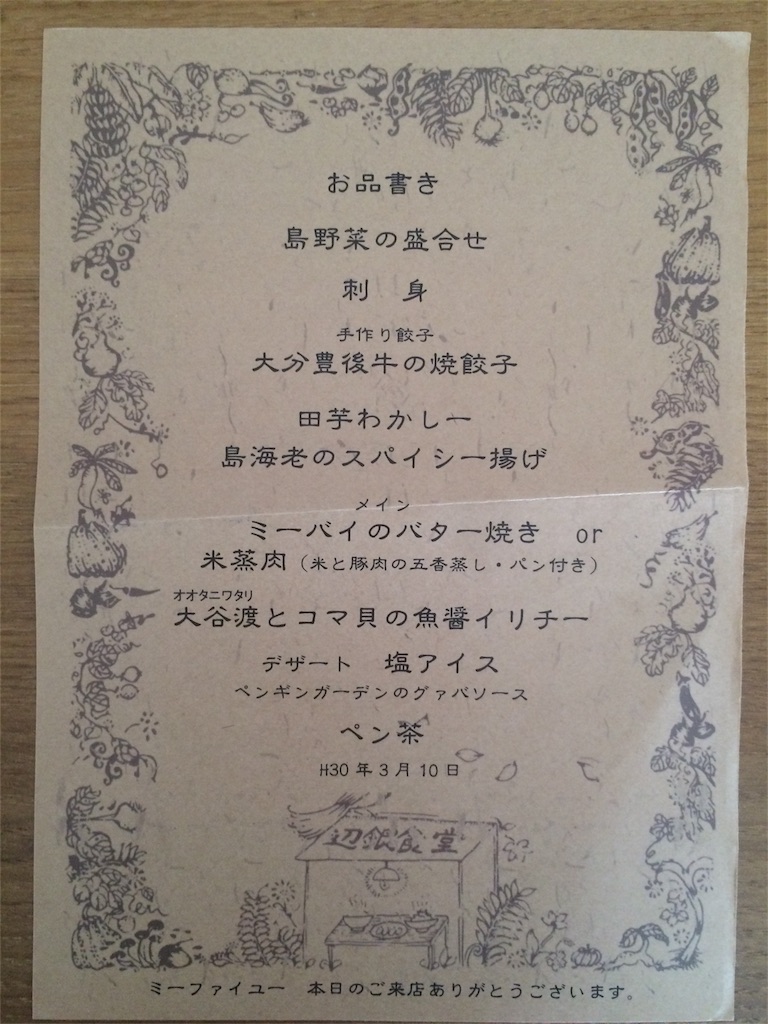 お品書き
島野菜の盛合せ
刺　身
手作り餃子
大分豊後牛の焼餃子
田芋わかしー
島海老のスパイシー揚げ
メイン
ミーバイのバター焼き　or
米蒸肉（米と豚肉の五香蒸し・パン付き）
オオタニワタリ
大谷渡とコマ貝の魚醤イリチー
デザート　塩アイス
ペンギンガーデンのグァバソース
ペン茶
H30年3月10日
辺銀食堂
ミーファイユー　本日のご来店ありがとうございます。